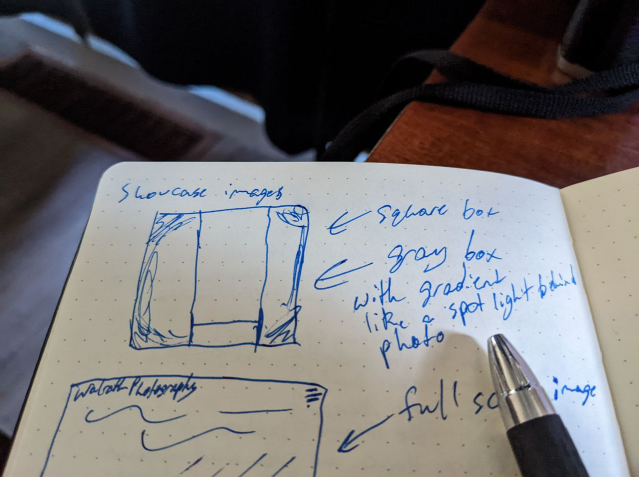 Showcase images
square box
gray box
with gradient
like a spot light behind
photo
Photography
full image